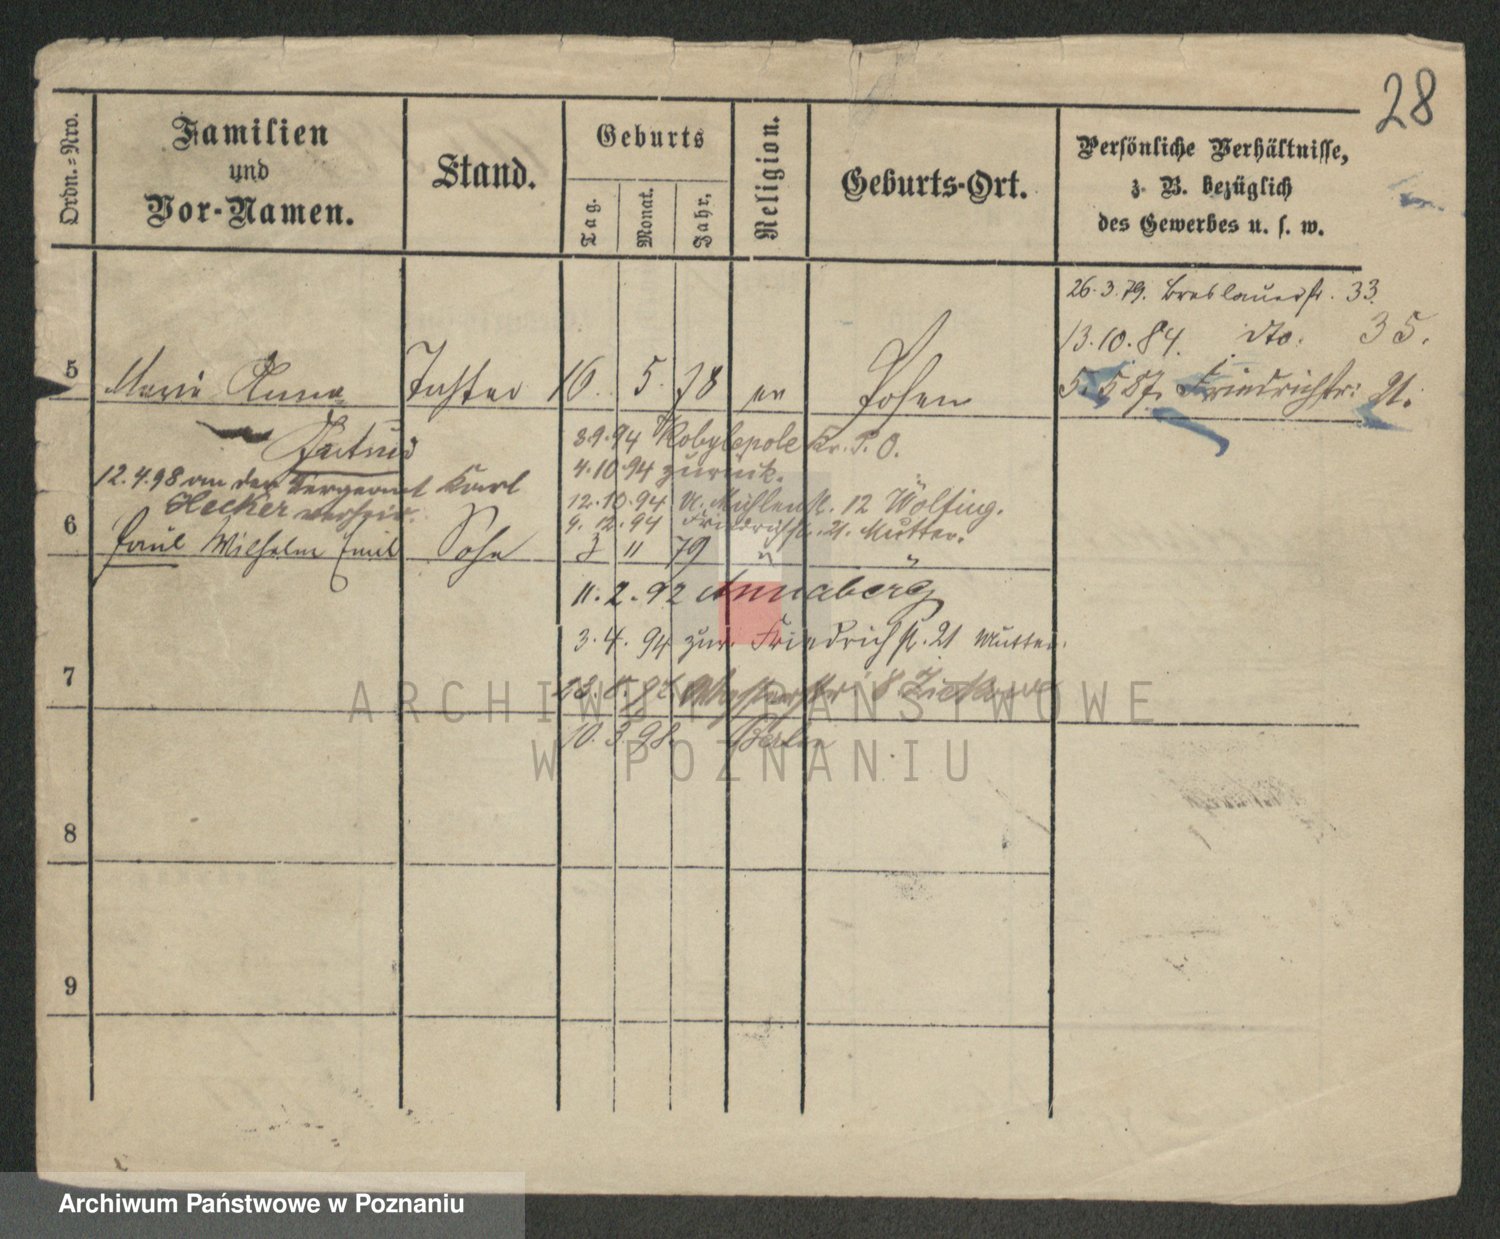 28
Ordn.=Nro.
Familien
und
Vor-Namen.
Stand.
Geburts
Tag.
Monat.
Jahr,
Religion.
Geburts-Ort.
Persönliche Verhältnisse,
z. B. bezüglich
des Gewerbes u. s. w.
26.3.79. Breslauerstr. 33.
13.10.84. dto. 35.
5 Marie Anna Tochter 16. 5. 78 ev Posen
5.5 87. Friedrichstr: 21.
8.9.94 Kobylepole Kr. P. O.
4.10.94 zurück.
12.4.98 an den Sergeant Karl
Hecker verheir.
12.10.94 U. Mühlenstr. 12 Wolfing.
9.12.94 Friedrichstr. 21. Mutter.
6 Paul Wilhelm Emil Sohn 3 11 79 " "
11.2.92 Annaberg
3.4.94 zur. Friedrichstr. 21 Mutter.
7
10.3.98. Berlin
8
9
ARCHIWUM PAŃSTWOWE
W POZNANIU
Archiwum Państwowe w Poznaniu